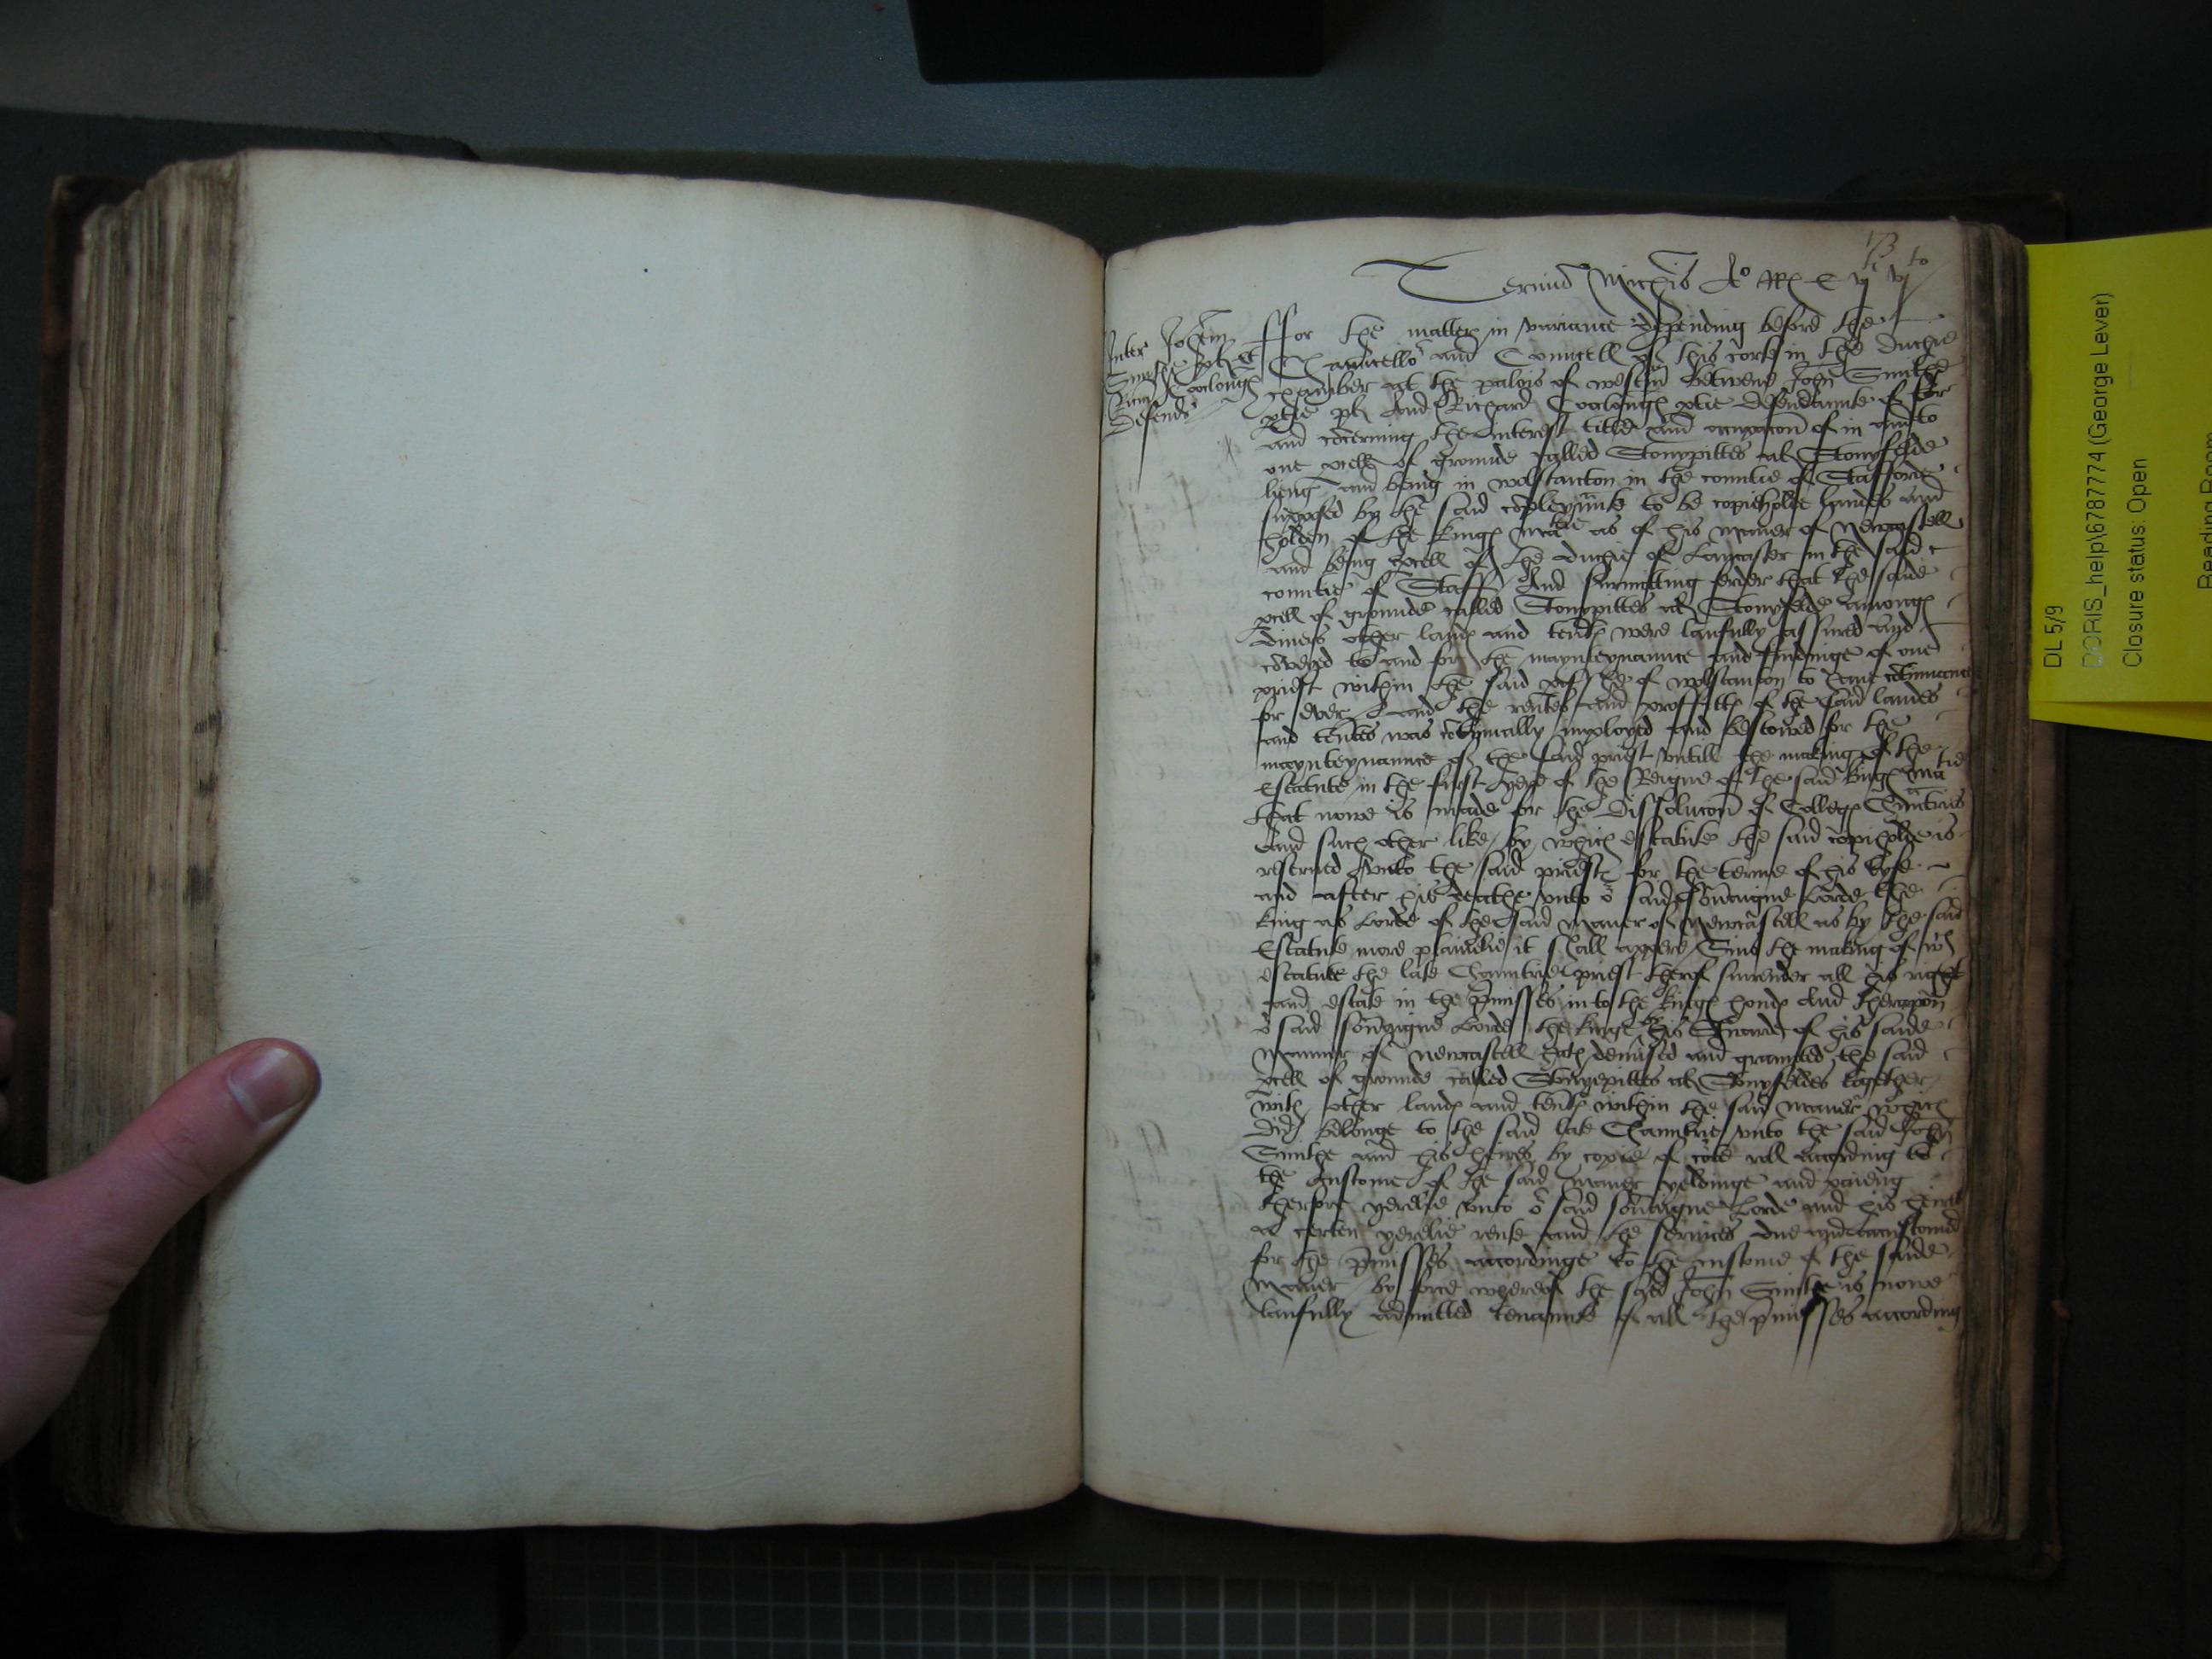 173
Termino Michis Ao RR E vjti vjto
Inter Johem
Smythe plt et
Ricm Coclough
Defend
ffor the matter in variance depending before the
Chauncello and Councell of this corte in the Duchie
chamber at the palois of westm Betwene John Smithe
ptie pl And Richard Coclough ptie Defendaunte of for
and concerning the interest title and occupacon of in and to
one pcell of grounde called Stonypittes at Stonyfelde
lieng and being in wolstanton in the countie of Stafford
supposed by the said compleynaunte to be copieholde landes and
holden of the Kinges matie as of his maner of Newcastell
and being pcell of the duchie of Lancaster in the said
countie of Staff And surmitting ferder that the saide
pcell of grounde called Stonypittes at Stonyfelde amonges
divers other landes and tents were laufully assured and
conveyed to and for the maynteynaunce and findinge of one
priest within the said pisshe of wolstanton to have contynuance
for ever And the rentes and proffittes of the said landes
and tentes was contynually imployed and bestowed for the
maynteynaunce of the said priest untill the making of the
Estatute in the first yere of the Reigne of the said kinges matie
that nowe is made for the Dissolucon of Colleges Chauntries
and such other like by which estatute the said copieholde is
reserved unto the said priest for the terme of his lyfe
and after his deathe unto or said soveraigne Lorde the
King as Lorde of the said maner of Newcastell as by the said
Estatute more plainelie it shall appere Sins the making of wch
estatute the late Chauntrie priest therof surrender all his right
and estate in the pmisses in to the kinges hondes And therupon
or said soveraigne Lorde the kinge by his Steward of his saide
Mannor of Newcastell hath demised and graunted the said
pcell of grounde called Stonyepittes at Stonyfeldes together
with other landes and tents within the said maner which
did belonge to the said late Chauntrie unto the said John
Smithe and his heires by copie of corte roll according to
the Custome of the said maner yeldinge and paieng
therfore yerelie unto or said soveraigne Lorde and his heires
a certen yerelie rente and the services due and accustomed
for the pmisses accordinge to the custome of the saide
maner by force wherof the said John Smithe is nowe
laufully admitted tenaunte of all the pmisses according
DL 5/9
DORIS_help\6787774 (George Lever)
Closure status: Open
Reading Room